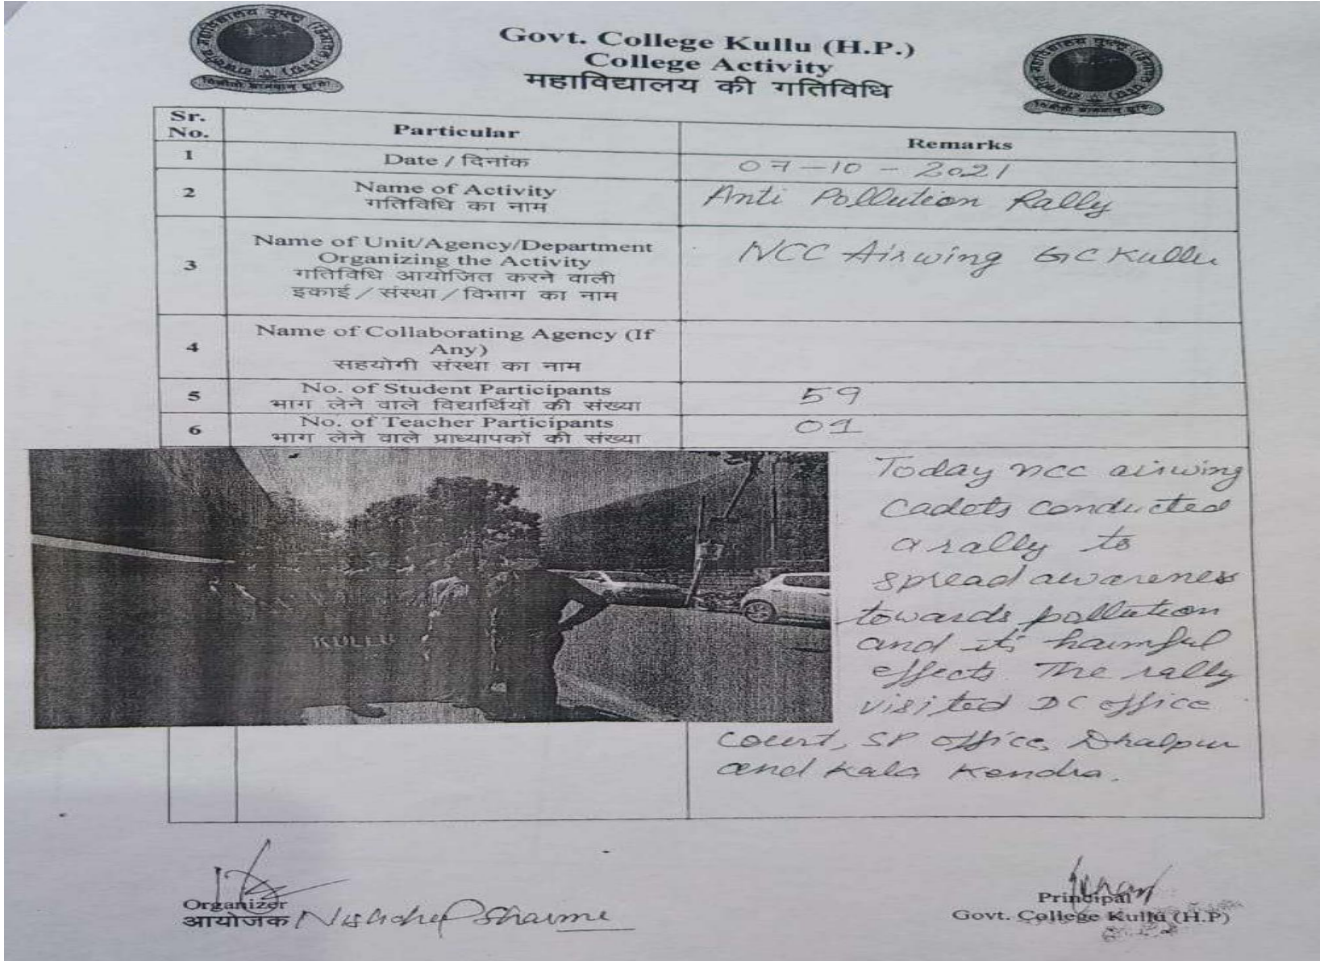 Govt. College Kullu (H.P.)
College Activity
महाविद्यालय की गतिविधि
Sr. No. Particular Remarks
1 Date / दिनांक 07-10-2021
2 Name of Activity Anti Pollution Rally
गतिविधि का नाम
Name of Unit/Agency/Department
3 Organizing the Activity NCC Airwing GC Kullu
गतिविधि आयोजित करने वाली
इकाई / संस्था / विभाग का नाम
Name of Collaborating Agency (If
4 Any)
सहयोगी संस्था का नाम
5 No. of Student Participants 59
भाग लेने वाले विद्यार्थियों की संख्या
6 No. of Teacher Participants 01
भाग लेने वाले प्राध्यापकों की संख्या
KULLU
Today ncc airwing
Cadets conducted
a rally to
spread awareness
towards pollution
and it's harmful
effects. The rally
visited DC office
court, SP office, Dhalpur
and Kala Kendra.
Organizer
आयोजक Sharma
Principal
Govt. College Kullu (H.P)